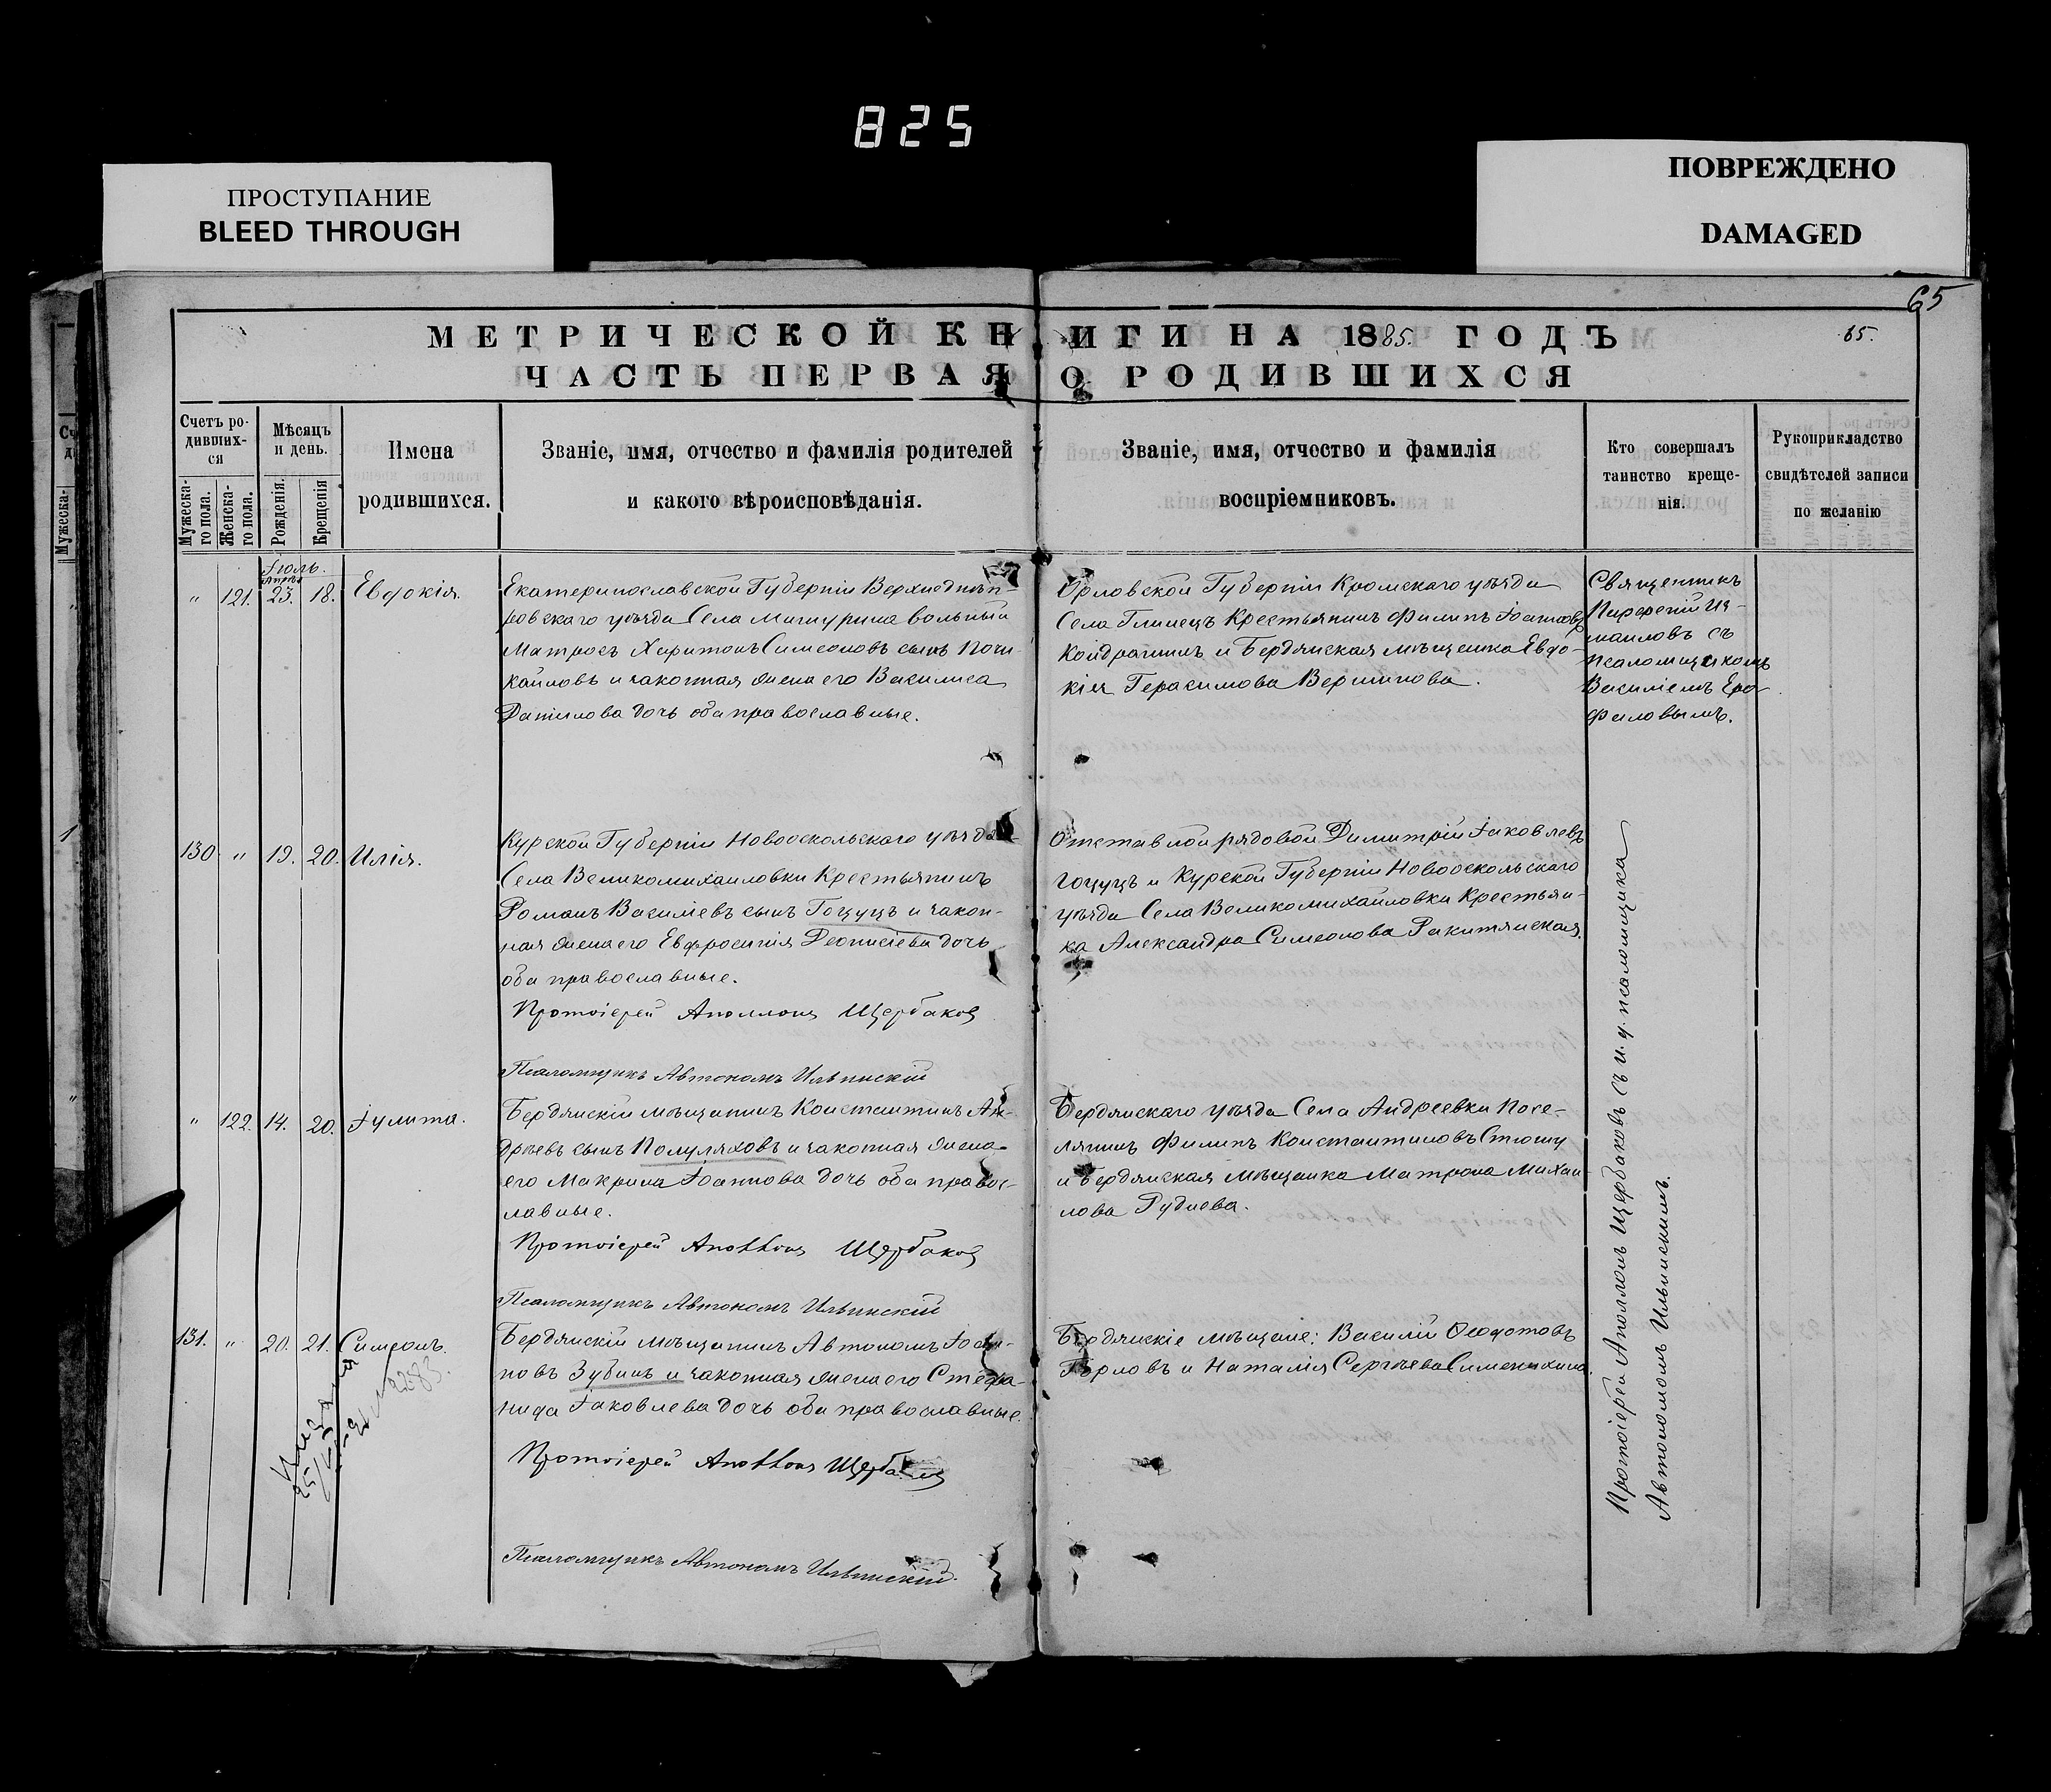 825
ПРОСТУПАНИЕ
BLEED THROUGH
ПОВРЕЖДЕНО
DAMAGED
65
МЕТРИЧЕСКОЙ КНИГИ НА 1885. ГОДЪ
65.
ЧАСТЬ ПЕРВАЯ О РОДИВШИХСЯ
Счетъ ро-
дивших-
ся
Мужеска-
го пола.
Женска-
го пола.
Мѣсяцъ
и день.
Рожденія.
Крещенія
Имена
родившихся.
Званіе, имя, отчество и фамилія родителей
и какого вѣроисповѣданія.
Званіе, имя, отчество и фамилія
воспріемниковъ.
Кто совершалъ
таинство креще-
нія.
Рукоприкладство
свидѣтелей записи
по желанію
Іюль.
Апрѣ
„ 121. 23. 18. Евдокія.
Екатеринославской Губерніи Верхнеднѣп-
ровскаго уѣзда Села Мишурина вольный
Матросъ Харитонъ Симеоновъ сынъ
и законная жена его Василиса
Данилова дочь оба православные.
Орловской Губерніи Кромскаго уѣзда
Села Глинецъ Крестьянинъ Филипъ Іоанновъ
Кондрашинъ и Бердянская мѣщанка Евдо-
кія Герасимова Вершинова.
Священникъ
Парфеній Из-
маиловъ съ
псаломщикомъ
Василіемъ Еро-
феловымъ.
130 „ 19. 20. Илія.
Курской Губерніи Новооскольскаго уѣзда
Села Великомихаиловки Крестьянинъ
Романъ Василіевъ сынъ Гоцуцъ и закон-
ная жена его Евфросинія Деонисіева дочь
оба православные.
Протоіерей Аполлонъ Щербаковъ
Псаломщикъ Автономъ Ильинскій
Отставной рядовой Димитрій Іаковлевъ
Гоцуцъ и Курской Губерніи Новооскольскаго
уѣзда Села Великомихайловки Крестьян-
ка Александра Симеонова Ракитянская.
„ 122. 14. 20. Іулита.
Бердянскій мѣщанинъ Константинъ Ан-
дреевъ сынъ Полуляховъ и законная жена
его Макрина Іоаннова дочь оба правос-
лавные.
Протоіерей Аполлонъ Щербаковъ
Псаломщикъ Автономъ Ильинскій
Бердянскаго уѣзда Села Андреевки Посе-
лянинъ Филипъ Константиновъ Стюшу
и Бердянская мѣщанка Матрона Михаи-
лова Руднева.
131. „ 20. 21. Симеонъ.
Бердянскій мѣщанинъ Автономъ Іоан-
новъ Зубинъ и законная жена его Стефа-
нида Іаковлева дочь оба православные.
Протоіерей Аполлонъ Щербаковъ
Псаломщикъ Автономъ Ильинскій.
Бердянскіе мѣщане: Василій Ѳеодотовъ
Горловъ и Наталія Сергѣева Сименихина.
Протоіерей Аполлонъ Щербаковъ съ и. д. псаломщика
Автономомъ Ильинскимъ.
№ 2283.